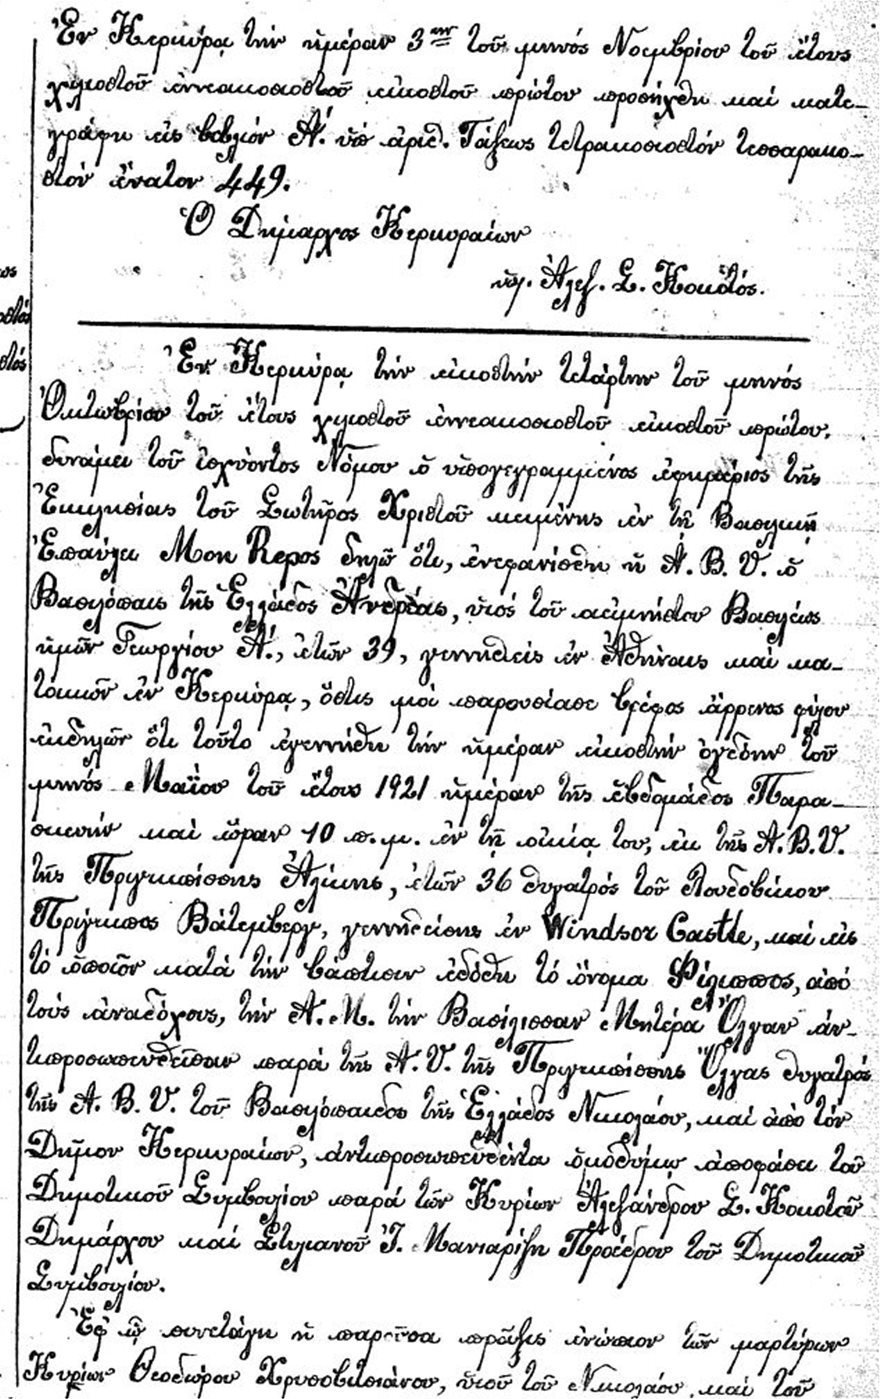 Ἐν Κερκύρᾳ τὴν ἡμέραν 3ην τοῦ μηνός Νοεμβρίου τοῦ ἔτους
χιλιοστοῦ ἐννεακοσιοστοῦ εἰκοστοῦ πρώτου προσήχθη καί κατε-
γράφη εἰς βιβλίον Α΄. ὑπ' ἀριθ. Τάξεως τετρακοσιοστόν τεσσαρακο-
στόν ἔνατον 449.
Ὁ Δήμαρχος Κερκυραίων
ὑπ. Ἀλεξ. Σ. Κοκοτός.
Ἐν Κερκύρᾳ τὴν εἰκοστήν τετάρτην τοῦ μηνός
Ὀκτωβρίου τοῦ ἔτους χιλιοστοῦ ἐννεακοσιοστοῦ εἰκοστοῦ πρώτου,
δυνάμει τοῦ ἰσχύοντος Νόμου ὁ ὑπογεγραμμένος ἐφημέριος τῆς
Ἐκκλησίας τοῦ Σωτῆρος Χριστοῦ κειμένης ἐν τῇ Βασιλικῇ
Ἐπαύλει Mon Repos δηλῶ ὅτι, ἐνεφανίσθη ἡ Α. Β. Υ. ὁ
Βασιλόπαις τῆς Ἑλλάδος Ἀνδρέας, υἱός τοῦ ἀειμνήστου Βασιλέως
ἡμῶν Γεωργίου Α΄., ἐτῶν 39, γεννηθείς ἐν Ἀθήναις καί κα-
τοικῶν ἐν Κερκύρᾳ, ὅστις μοί παρουσίασε βρέφος ἄρρενος φύλου
ἐκδηλῶν ὅτι τοῦτο ἐγεννήθη τήν ἡμέραν εἰκοστήν ὀγδόην τοῦ
μηνός Μαΐου τοῦ ἔτους 1921 ἡμέραν τῆς ἑβδομάδος Παρα-
σκευήν καί ὥραν 10 π.μ. ἐν τῇ οἰκίᾳ του, ἐκ τῆς Α. Β. Υ.
τῆς Πριγκιπίσσης Ἀλίκης, ἐτῶν 36 θυγατρός τοῦ Λουδοβίκου
Πρίγκιπος Βάτεμβεργ, γεννηθείσης ἐν Windsor Castle, καί εἰς
τό ὁποῖον κατά τήν βάπτισιν ἐδόθη τό ὄνομα Φίλιππος, ἀπό
τούς ἀναδόχους, τήν Α. Μ. τήν Βασίλισσαν Μητέρα Ὄλγαν ἀν-
τιπροσωπευθεῖσαν παρά τῆς Α. Υ. τῆς Πριγκιπίσσης Ὄλγας θυγατρός
τῆς Α. Β. Υ. τοῦ Βασιλόπαιδος τῆς Ἑλλάδος Νικολάου, καί ἀπό τόν
Δῆμον Κερκυραίων, ἀντιπροσωπευθέντα ὁμοθύμῳ ἀποφάσει τοῦ
Δημοτικοῦ Συμβουλίου παρά τῶν Κυρίων Ἀλεξάνδρου Σ. Κοκοτοῦ
Δημάρχου καί Στυλιανοῦ Ἰ. Μανιαρίζη Προέδρου τοῦ Δημοτικοῦ
Συμβουλίου.
Ἐφ' ᾧ συνετάγη ἡ παροῦσα πρᾶξις ἐνώπιον τῶν μαρτύρων
Κυρίων Θεοδώρου Χρυσοβιτσιάνου, υἱοῦ τοῦ Νικολάου, καί τοῦ